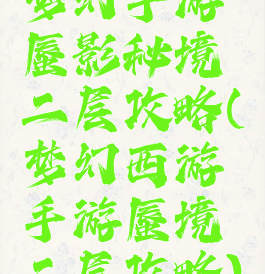 梦幻手游
蜃影秘境
二层攻略(
梦幻西游
手游蜃境
二层攻略)